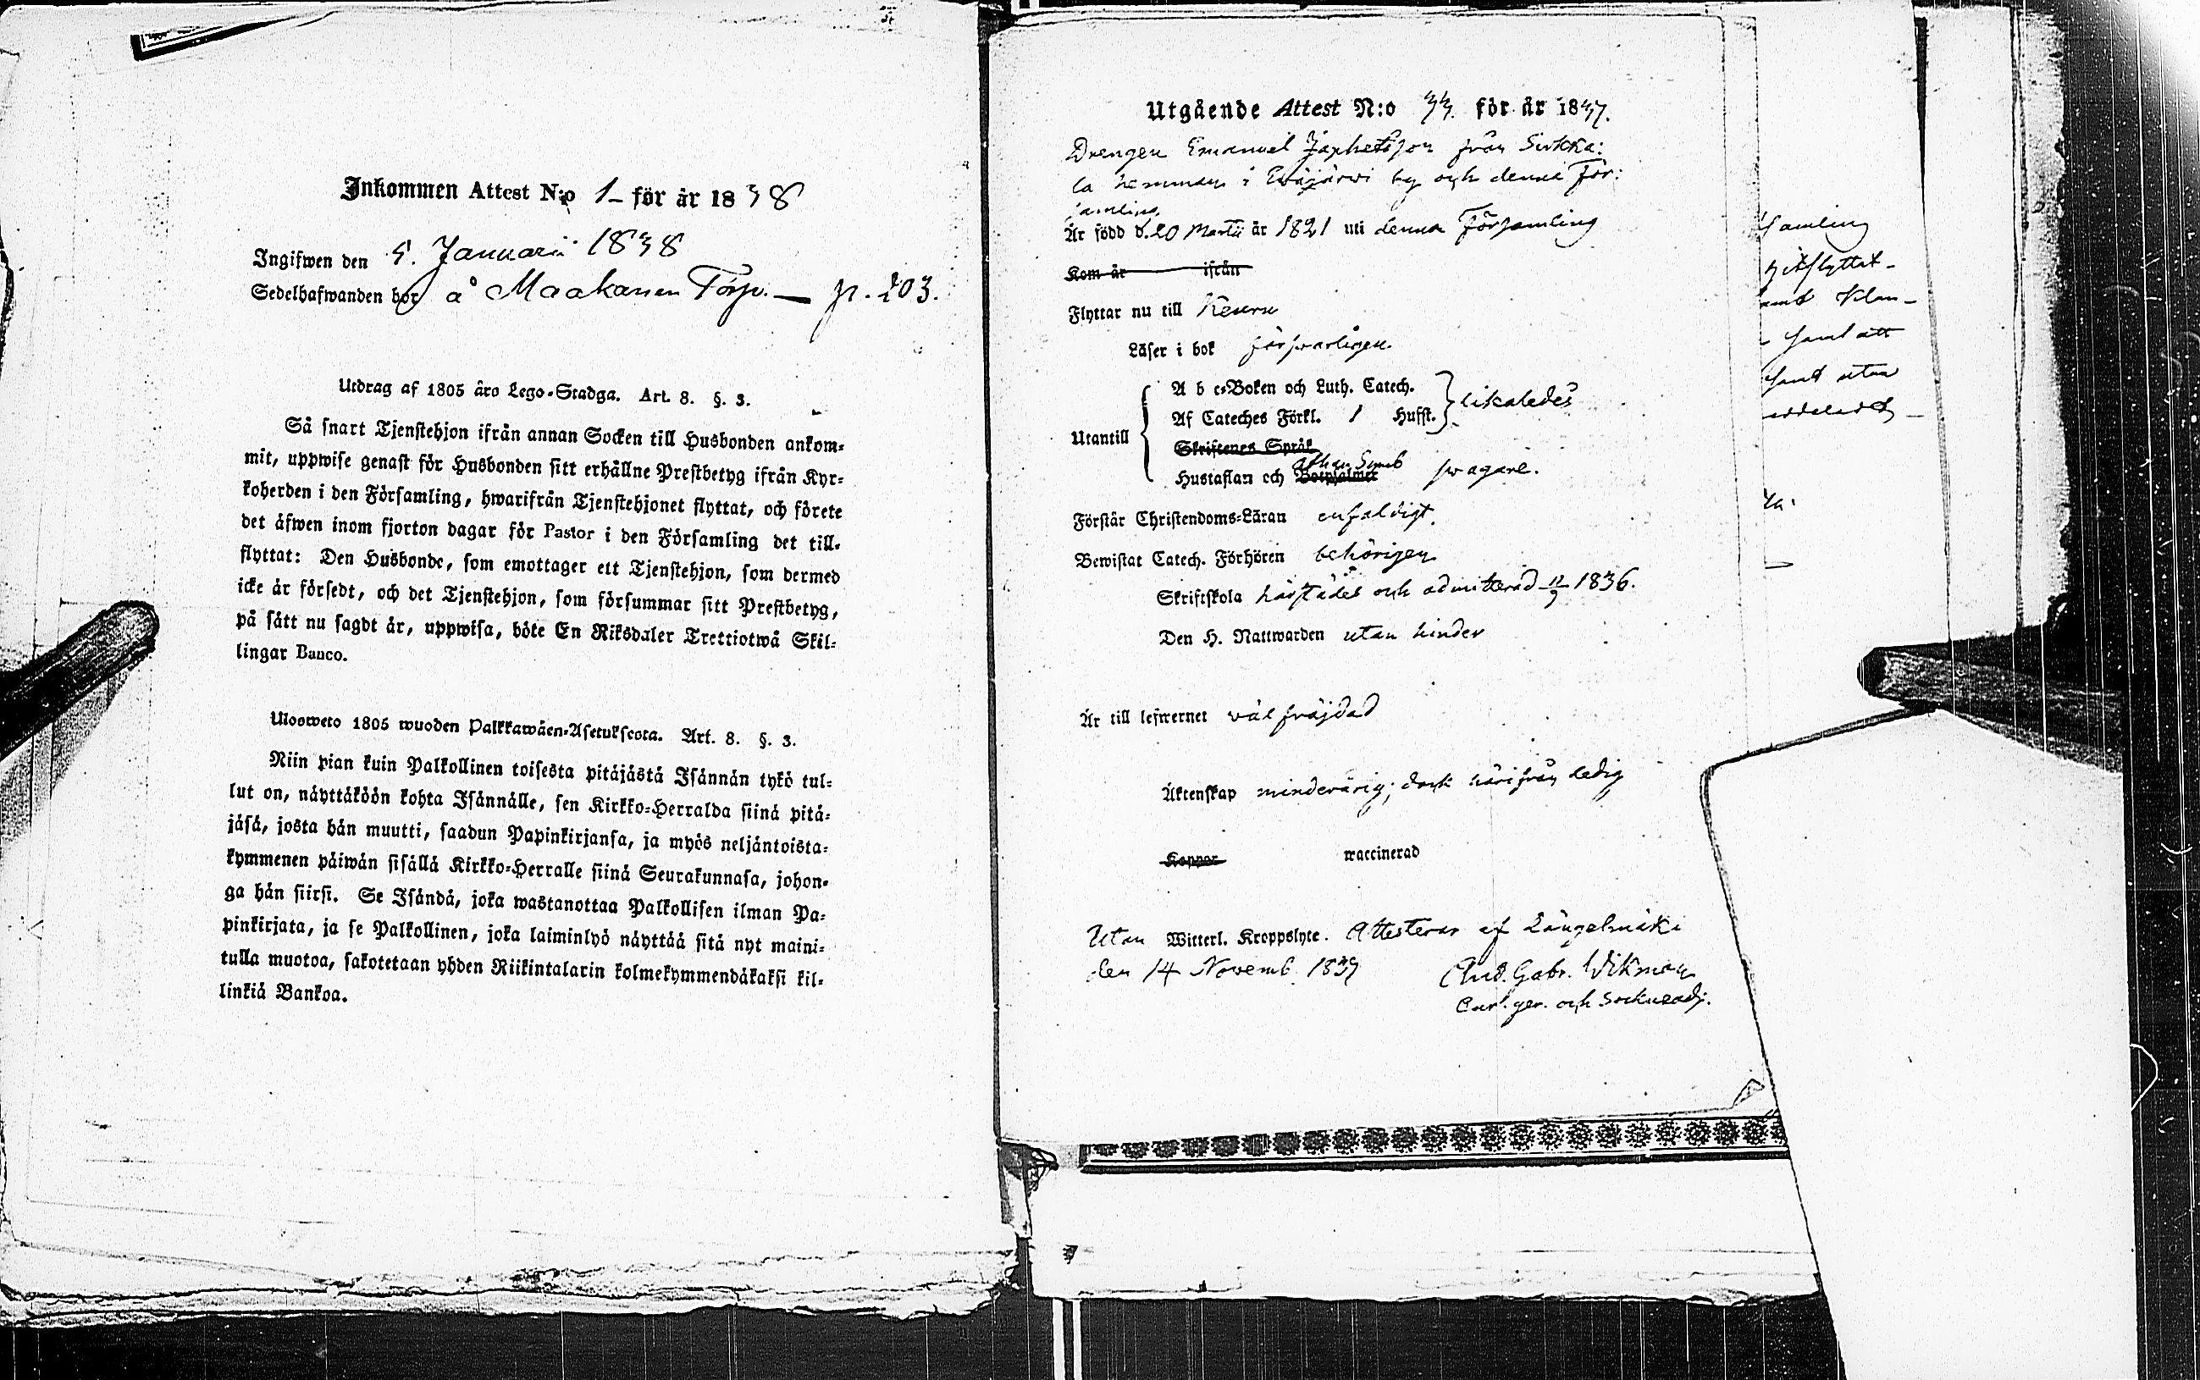 Inkommen Attest N:o 1 – för år 1838
Ingifwen den 5. Januarii 1838
Sedelhafwanden bor å Maakanen Torp. — p. 203.
Utdrag af 1805 års Lego-Stadga. Art. 8. §. 3.
Så snart Tjenstehjon ifrån annan Socken till Husbonden ankom-
mit, uppwise genast för Husbonden sitt erhållne Prestbetyg ifrån Kyr-
koherden i den Församling, hwarifrån Tjenstehjonet flyttat, och förete
det äfwen inom fjorton dagar för Pastor i den Församling det till-
flyttat: Den Husbonde, som emottager ett Tjenstehjon, som dermed
icke är försedt, och det Tjenstehjon, som försummar sitt Prestbetyg,
på sätt nu sagdt är, uppwisa, böte En Riksdaler Trettiotwå Skil-
lingar Banco.
Ulosweto 1805 wuoden Palkkawäen-Asetuksesta. Art. 8. §. 3.
Niin pian kuin Palkollinen toisesta pitäjästä Isännän tykö tul-
lut on, näyttäköön kohta Isännälle, sen Kirkko-Herralda siinä pitä-
jäsä, josta hän muutti, saadun Papinkirjansa, ja myös neljäntoista-
kymmenen päiwän sisällä Kirkko-Herralle siinä Seurakunnasa, johon-
ga hän siirsi. Se Isändä, joka wastanottaa Palkollisen ilman Pa-
pinkirjata, ja se Palkollinen, joka laiminlyö näyttää sitä nyt maini-
tulla muotoa, sakotetaan yhden Riikintalarin kolmekymmendäkaksi kil-
linkiä Bankoa.
Utgående Attest N:o 33. för år 1837.
Drengen Emanuel Japhetsson från Sirkka:
la hemman i Eräjärwi by och denna För:
samling
Är född d. 20 Martii år 1821 uti denna Församling
Kom år ifrån
Flyttar nu till Keuru
Läser i bok försvarligen.
A b c-Boken och Luth. Catech.
Af Cateches Förkl. 1 Hufst. likaledes
Utantill
Skriftenes Språk
Athan. Symb
Hustaflan och Botpsalmer svagare.
Förstår Christendoms-Läran enfaldigt.
Bewistat Catech. Förhören behörigen
Skriftskola härstädes och admitterad 1836.
Den H. Nattwarden utan hinder
Är till lefwernet väl fräjdad
Äktenskap minderårig; dock härifrån ledig
Koppor waccinerad
Utan Witterl. Kroppslyte. Attesterar af Längelmäki
den 14 Novemb. 1837 And. Gabr. Wikman
och Sockneadj.
samling
utflyttat –
samt
– samt att
samt utan